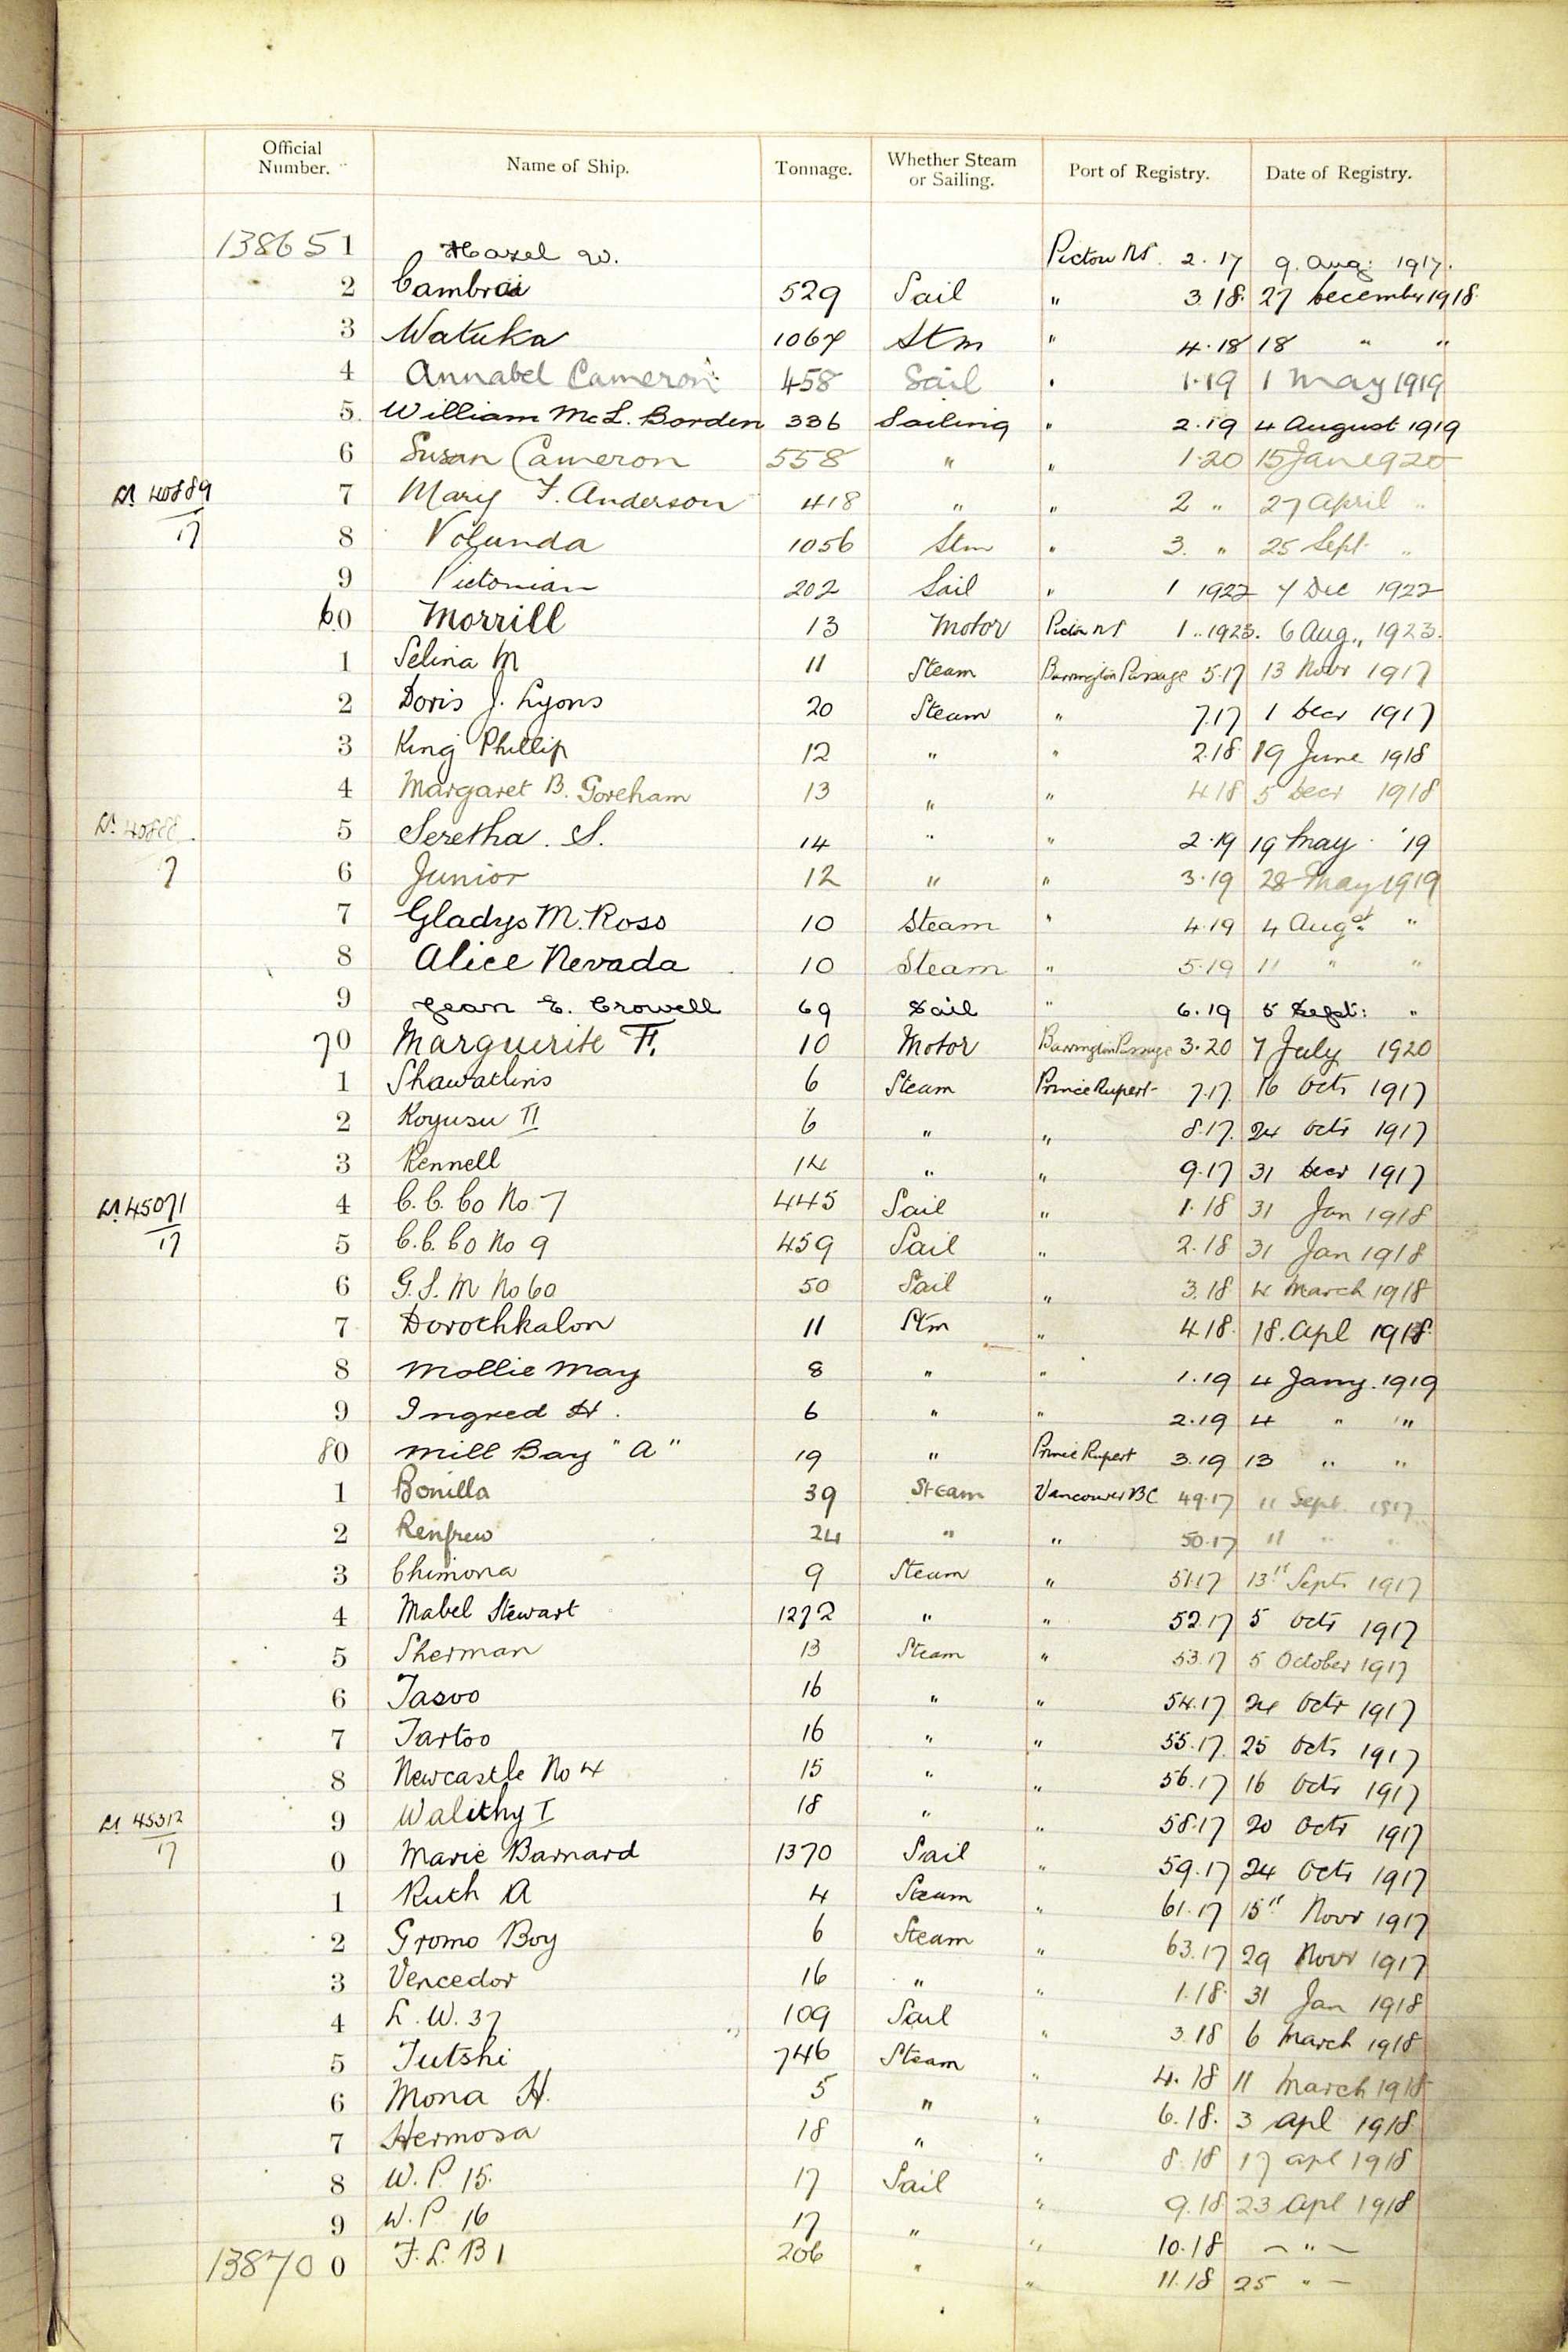 Official Number. Name of Ship. Tonnage. Whether Steam or Sailing. Port of Registry. Date of Registry.
138651 Hazel W. Pictou NS. 2.17 9. Aug: 1917.
2 Cambrai 529 Sail " 3.18. 27 December 1918.
3 Watuka 1067 Stm " 4.18 18 " "
4 Annabel Cameron 458 Sail " 1.19 1 May 1919
5. William McL. Borden 336 Sailing " 2.19 4 August 1919
6 Susan Cameron 558 " " 1.20 15 Jan 1920
40889/17 7 Mary F. Anderson 418 " " 2 " 27 April "
8 Volunda 1056 Stm " 3. " 25 Sept. "
9 Pictonian 202 Sail " 1 1922 7 Dec 1922
60 Morrill 13 Motor Pictou NS 1..1923. 6 Aug., 1923.
1 Selina M 11 Steam Barrington Passage 5.17 13 Novr 1917
2 Doris J. Lyons 20 Steam " 7.17 1 Decr 1917
3 King Phillip 12 " " 2.18 19 June 1918
4 Margaret B. Goreham 13 " " 4.18 5 Decr 1918
5 Seretha. S. 14 " " 2.19 19 May '19
7 6 Junior 12 " " 3.19 28 May 1919
7 Gladys M. Ross 10 Steam " 4.19 4 Augst "
8 Alice Nevada 10 Steam " 5.19 11 " "
9 Jean E. Crowell 69 Sail " 6.19 5 Sept: "
70 Marguerite F. 10 Motor Barrington Passage 3.20 7 July 1920
1 Shawatlins 6 Steam Prince Rupert 7.17. 16 Octr 1917
2 Koyusu II 6 " " 8.17. 24 Octr 1917
3 Rennell 14 " " 9.17 31 Decr 1917
45071/17 4 C.C. Co No 7 445 Sail " 1.18 31 Jan 1918
5 C.C. Co No 9 459 Sail " 2.18 31 Jan 1918
6 G.S. M No 60 50 Sail " 3.18 4 March 1918
7 Dorothkalon 11 Stm " 4.18. 18. Apl 1918.
8 Mollie May 8 " " 1.19 4 Jany. 1919
9 Ingred H. 6 " " 2.19 4 " "
80 Mill Bay "A" 19 " Prince Rupert 3.19 13 " "
1 Bonilla 39 Steam Vancouver BC 49.17 11 Sept. 1917
2 Renfrew 24 " " 50.17 11 " "
3 Chimona 9 Steam " 51.17 13th Septr 1917
4 Mabel Stewart 1272 " " 52.17 5 Octr 1917
5 Sherman 13 Steam " 53.17 5 October 1917
6 Tasoo 16 " " 54.17 24 Octr 1917
7 Tartoo 16 " " 55.17. 25 Octr 1917
8 Newcastle No 4 15 " " 56.17 16 Octr 1917
45312/17 9 Walithy I 18 " " 58.17 20 Octr 1917
0 Marie Barnard 1370 Sail " 59.17 24 Octr 1917
1 Ruth A 4 Steam " 61.17 15th Novr 1917
2 Gromo Boy 6 Steam " 63.17 29 Novr 1917
3 Vencedor 16 " " 1.18. 31 Jan 1918
4 L. W. 37 109 Sail " 3.18 6 March 1918
5 Tutshi 746 Steam " 4.18 11 March 1918
6 Mona H. 5 " " 6.18. 3 Apl 1918
7 Hermosa 18 " " 8.18 17 Apl 1918
8 W. P. 15. 17 Sail " 9.18 23 Apl 1918
9 W. P. 16 17 " " 10.18 — " —
138700 F. L. B 1 206 " " 11.18 25 " —